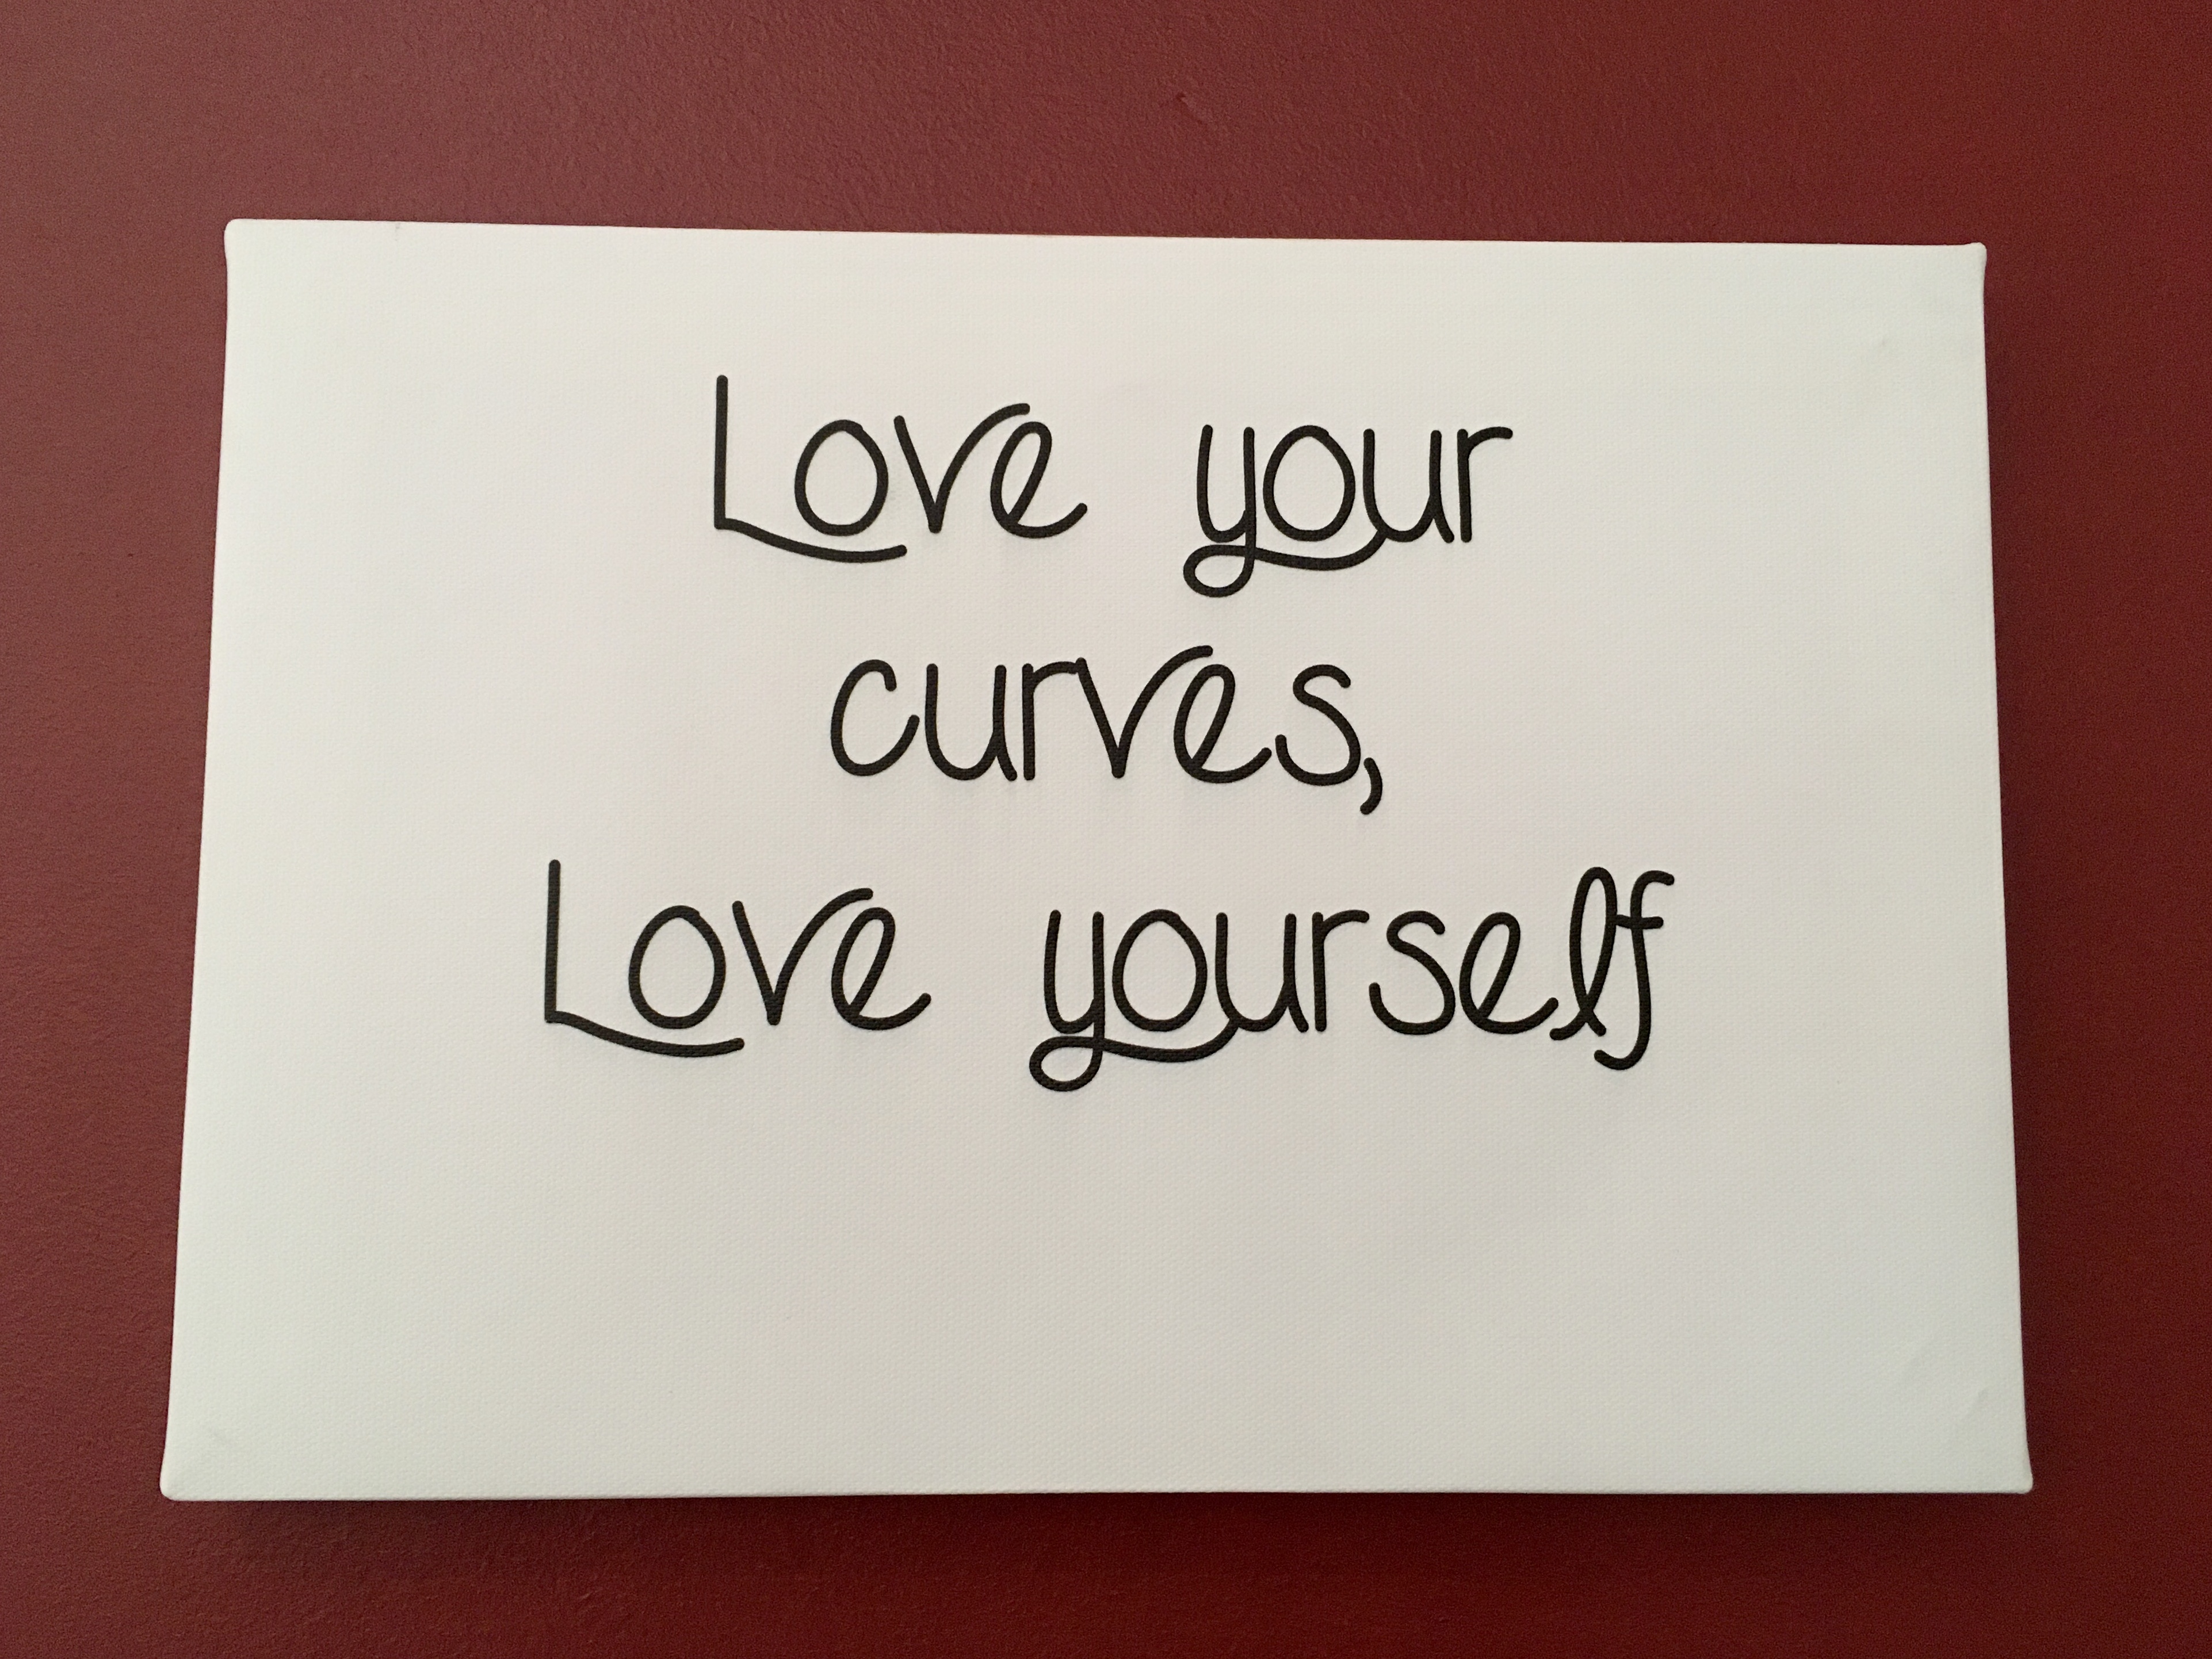 Love your
curves,
Love yourself